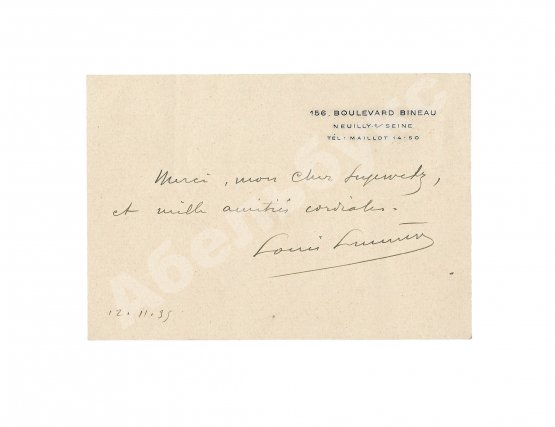 156, BOULEVARD BINEAU
NEUILLY S/ SEINE
TÉL: MAILLOT 14-50
Merci, mon cher Seyewetz,
et mille amitiés cordiales.
Louis Lumière
12.11.35
Абельбукс